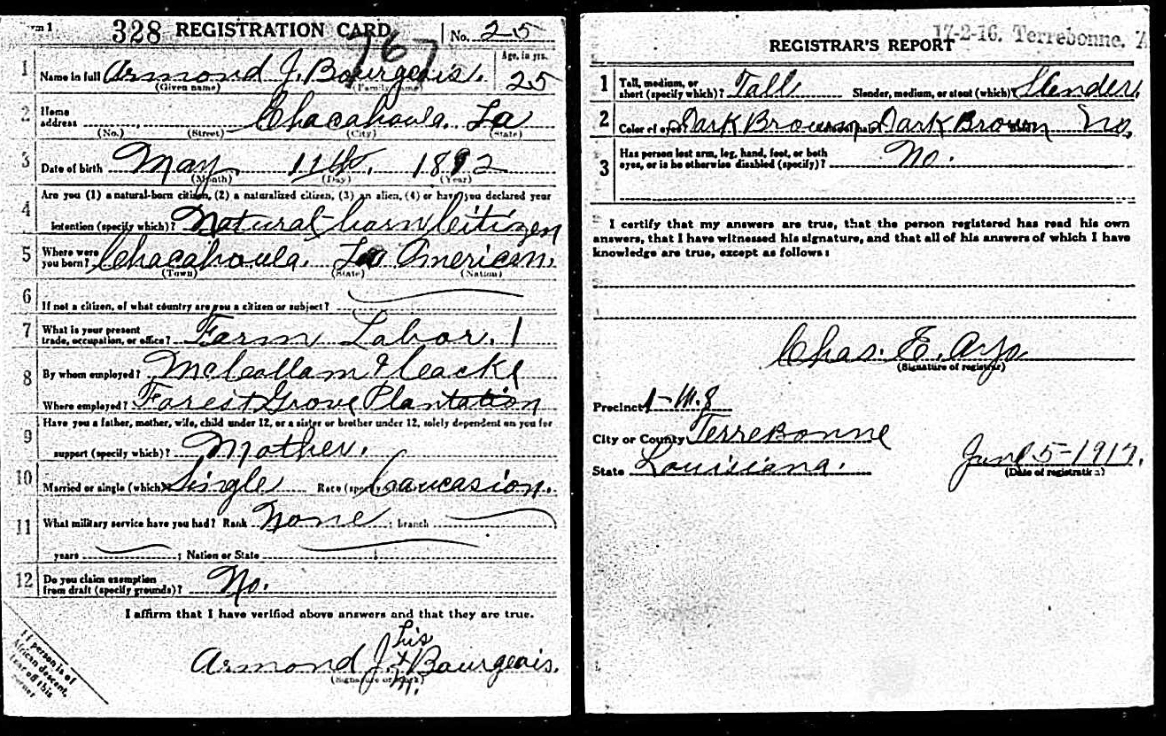 Form 1 328 REGISTRATION CARD 767 No. 25
1 Name in full Armond J. Bourgeois. Age, in yrs. 25
(Given name) (Family name)
2 Home address Chacahoula. La
(No.) (Street) (City) (State)
3 Date of birth May 11th. 1892
(Month) (Day) (Year)
Are you (1) a natural-born citizen, (2) a naturalized citizen, (3) an alien, (4) or have you declared your
4 intention (specify which)? Natural-born Citizen
5 Where were you born? Chacahoula. La American.
(Town) (State) (Nation)
6 If not a citizen, of what country are you a citizen or subject?
7 What is your present trade, occupation, or office? Farm Labor. 1
8 By whom employed? McCollam &
Where employed? Forest Grove Plantation
9 Have you a father, mother, wife, child under 12, or a sister or brother under 12, solely dependent on you for
support (specify which)? Mother.
10 Married or single (which)? Single Race (specify which)? Caucasion.
11 What military service have you had? Rank None ; branch
years ; Nation or State
12 Do you claim exemption from draft (specify grounds)? No.
I affirm that I have verified above answers and that they are true.
his
Armond J. X Bourgeois.
(Signature or mark)
M.
If person is of
African descent,
tear off this
corner
17-2-16. Terrebonne,
REGISTRAR'S REPORT
1 Tall, medium, or short (specify which)? Tall Slender, medium, or stout (which)? Slender
2 Color of eyes? Dark Brown Dark Brown No.
3 Has person lost arm, leg, hand, foot, or both eyes, or is he otherwise disabled (specify)? No.
I certify that my answers are true, that the person registered has read his own
answers, that I have witnessed his signature, and that all of his answers of which I have
knowledge are true, except as follows:
Chas. E. Ayo
(Signature of registrar)
Precinct 1-W.8
City or County Terrebonne
State Louisiana. June 5-1917.
(Date of registration)